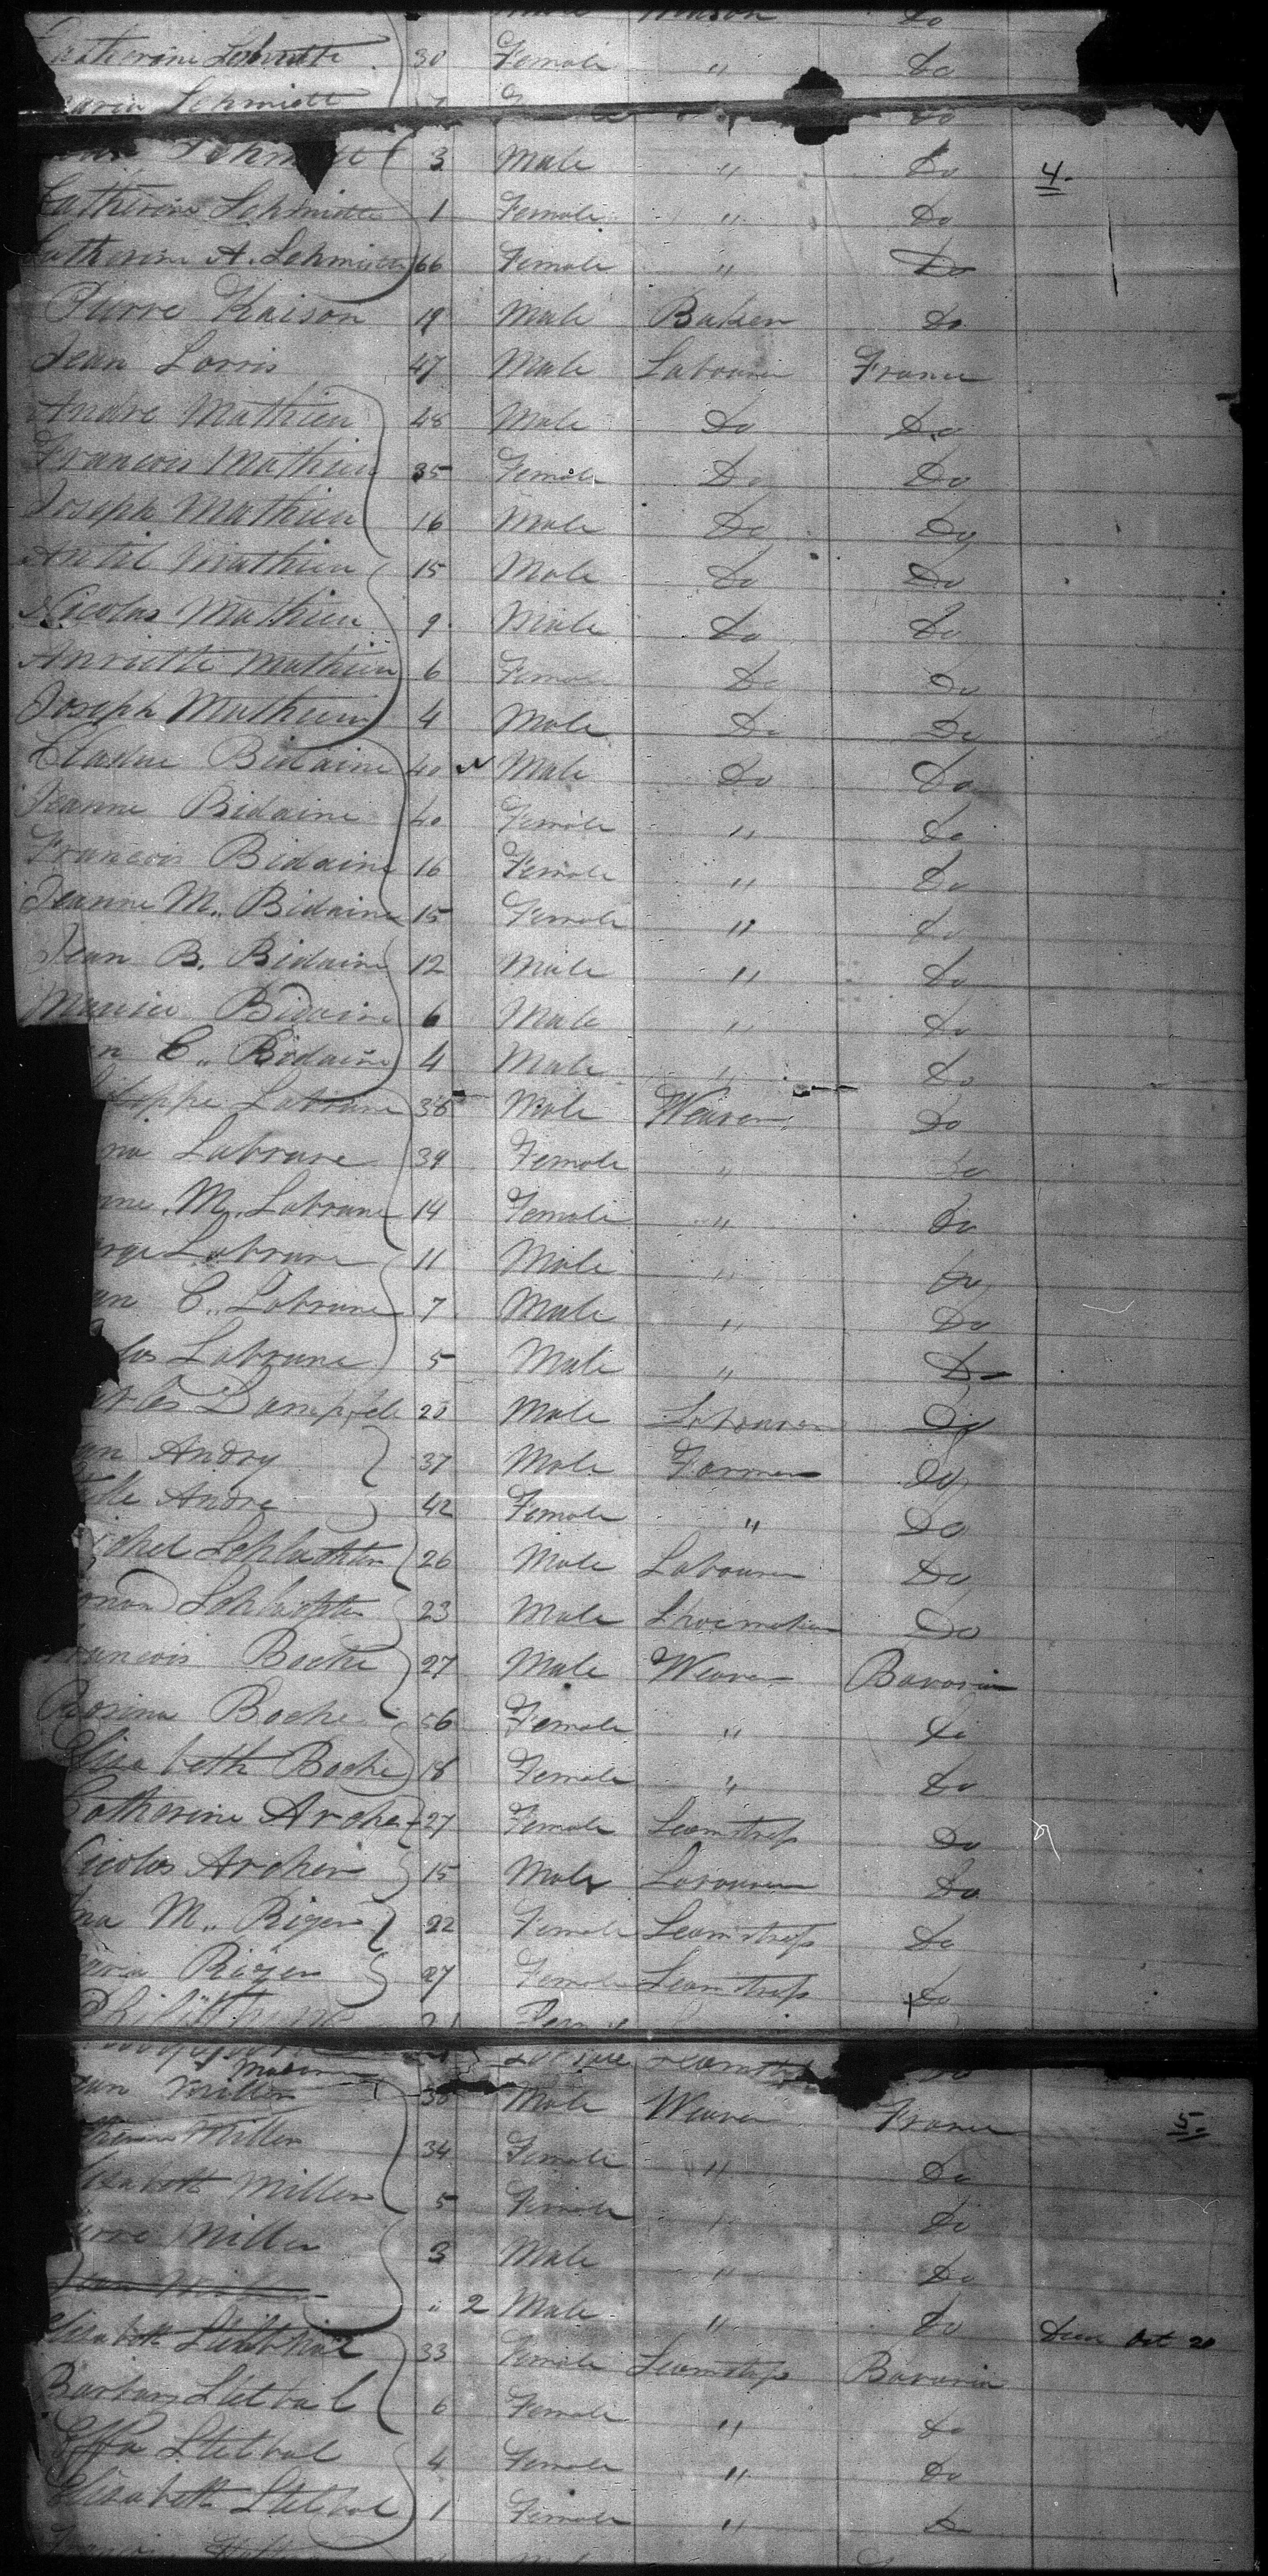 Mason Do
Catherine Schmitt 30 Female " Do
Maria Schmitt Do
Schmitt 3 Male " Do 4.
Catherine Schmitt 1 Female " Do
Catherine A. Schmitt 66 Female " Do
Pierre Kaison 19 Male Baker Do
Jean Lorris 47 Male Labourer France
Andre Mathieu 48 Male Do Do
Francois Mathieu 35 Female Do Do
Joseph Mathieu 16 Male Do Do
Antil Mathieu 15 Male Do Do
Nicolas Mathieu 9 Male Do Do
Anriette Mathieu 6 Female Do Do
Joseph Mathieu 4 Male Do Do
Cladue Bidaine 40 Male Do Do
Jeanne Bidaine 40 Female " Do
Francois Bidaine 16 Female " Do
Jeanne M. Bidaine 15 Female " Do
Jean B. Bidaine 12 Male " Do
Maurice Bidaine 6 Male " Do
C. Bidaine 4 Male " Do
Labrune 38 Male Weaver Do
Labrune 39 Female " Do
M. Labrune 14 Female " Do
Labrune 11 Male " Do
C. Labrune 7 Male " Do
Labrune 5 Male " Do
20 Male Labourer Do
Andry 37 Male Farmer Do
Andre 42 Female " Do
Schlachter 26 Male Labourer Do
Schlachter 23 Male Shoemaker Do
Francois Boche 27 Male Weaver Bavaria
Rosina Boche 56 Female " Do
Elisabeth Boche 18 Female " Do
Catherine Archer 27 Female Seamstress Do
Nicolas Archer 15 Male Labourer Do
M. Riger 22 Female Seamstress Do
Riger 27 Female Seamstress Do
21
Miller 38 Male Weaver France 5.
Miller 34 Female " Do
Miller 5 Female " Do
Miller 3 Male " Do
" 2 Male " Do Oct 20
Elisabeth 33 Female Seamstress Bavaria
Barbara Stelbal 6 Female " Do
Effa Stelbal 4 Female " Do
Elisabeth Stelbal 1 Female " Do